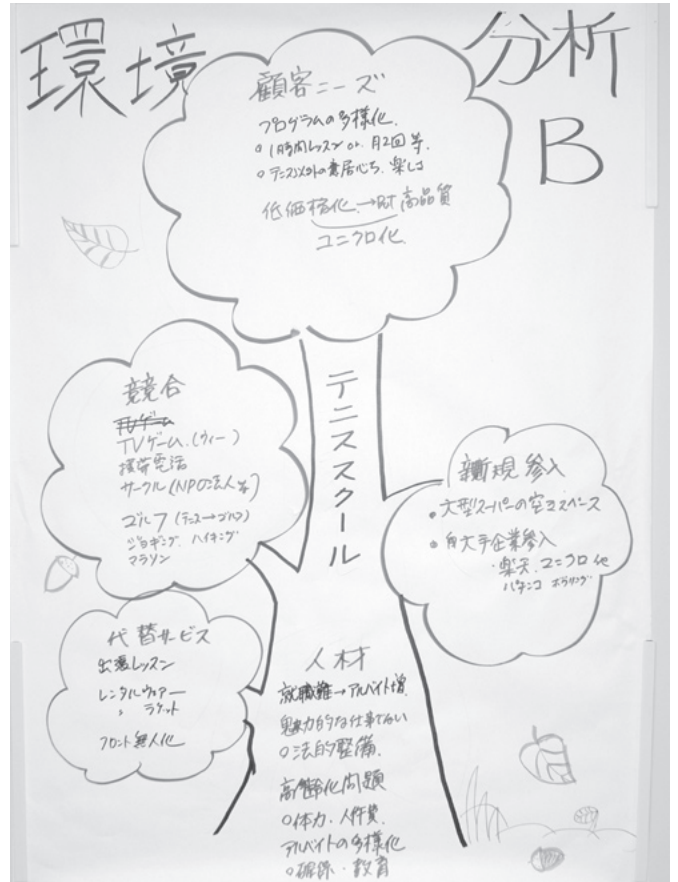 環境 分析
B
顧客ニーズ
プログラムの多様化.
○1時間レッスン or. 月2回 等.
○テニス以外の意居心ち. 楽しさ
低価格化.→ 高品質
ユニクロ化.
テニススクール
競合
TVゲーム
TVゲーム.(ウィー)
携帯電話
サークル(NPO法人等)
ゴルフ(テニス→ゴルフ)
ジョギング ハイキング
マラソン
新規 参入
•大型スーパーの空きスペース
• 大手企業参入
・楽天.ユニクロ 他
パチンコ ボウリング
代替サービス
出張レッスン
レンタルウェアー
ラケット
フロント無人化
人材
就職難→アルバイト増.
魅力的な仕事でない
○法的整備.
高齢化問題
○体力.人件費.
アルバイトの多様化
○ ・教育